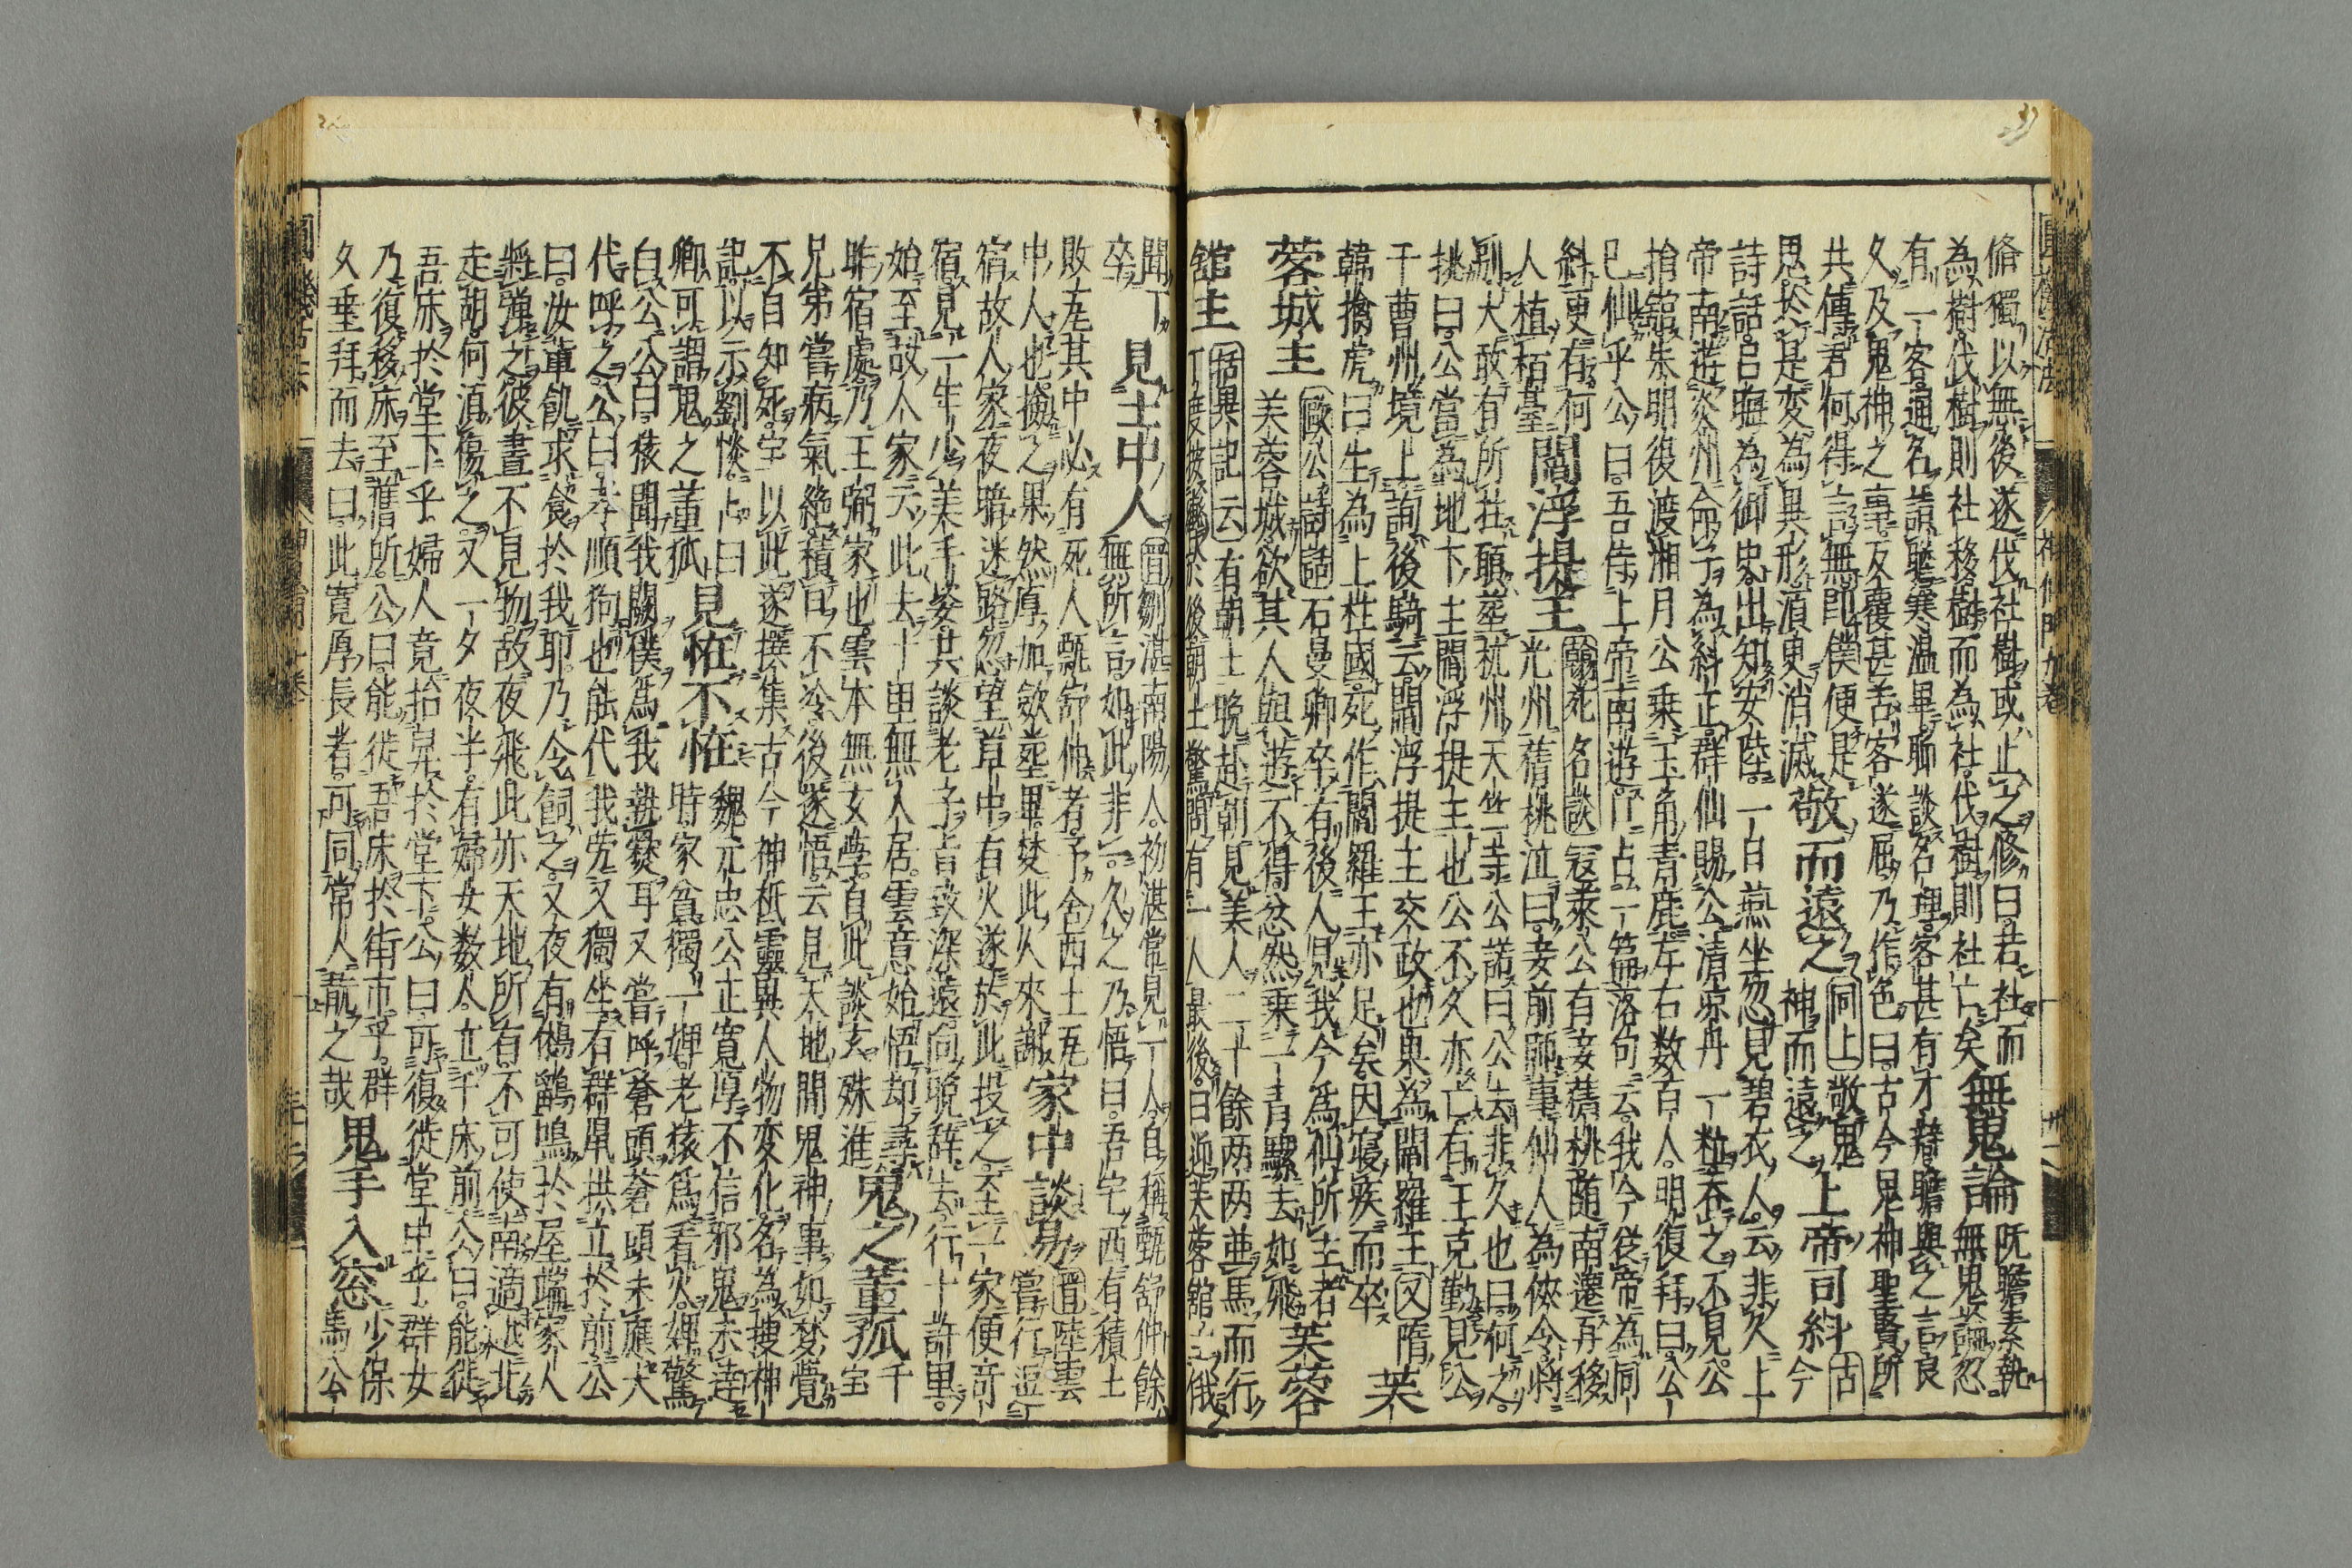 脩獨以無後遂伐社樹或止之修曰若社而
為樹伐樹則社移樹而為社伐樹則社亡矣
無鬼論
阮瞻素執無鬼論忽
有一客通名詣瞻寒温畢聊談名理客甚有才辯瞻與之言良
久及鬼神之事反覆甚苦客遂屈乃作色曰古今鬼神聖賢所
共傳君何得言無即僕便是
鬼於是変為異形湏臾消滅
敬而遠之
同上
敬鬼
神而遠之
上帝司糾
古今
詩話呂晦為御史出知安陸一白日燕坐忽見碧衣人云非久上
帝南遊炎州命子為糾正群仙賜公清凉丹一粒吞之不見公
朱明復渡湘月公乗玉角青鹿左右数百人明復拜曰公
已仙乎公曰吾侍上帝南遊口占一篇落句云我今從帝為同
糾更有何
人植栢臺
閻浮提王
名談
冦萊公有妾蒨桃随南遷再移
光州蒨桃泣曰妾前師事仙人為俠今将
別大敢有所託願葬杭州天竺寺公諾曰公去非久也曰何之
挑曰公當為地下主閻浮提主也公不久亦亡有王克勤見公
于曹州境上詢後騎云閻浮提主交政也果為閻羅王
又
隋
韓擒虎曰生為上柱國死作閻羅王亦足矣因寝疾而卒
芙
蓉城主
歐公詩話
石曼卿卒有後人見我今為仙所主者
芙蓉城欲其人與遊不得忿然乗一青騾去如飛
芙蓉
舘主
括異記云
有朝士晩赴朝見美人二十餘両両並馬而行
丁度按轡於後朝士驚問有一人最後曰迎芙蓉舘主俄
聞丁
卒
見土中人
晋
鄒湛南陽人初湛常見一人自稱甄舒仲餘
無所言如此非一久之乃悟曰吾宅西有積土
敗瓦其中必有死人甄舒仲者予舍西土瓦
中人也撿之果然厚加斂塟畢梦此人來謝
家中談易
晋
陸雲
嘗行逗
宿故人家夜暗迷路忽望草中有火遂於此投之至一家便寄
宿見一年少美手姿共談老子旨致深遠向晩辞去行十許里
始至故人家云此去十里無人居雲意始悟却尋
昨宿處乃王弼家也雲本無玄學自此談玄殊進
鬼之董狐
千
宝
兄弟嘗病氣絶積日不冷後遂悟云見天地間鬼神事如梦覺
不自知死宝以此遂撰集古今神祇靈異人物変化名為捜神
記以示劉惔曰
卿可謂鬼之董狐
見恠不恠
魏元忠公正寛厚不信邪鬼未逹
時家貧獨一婢老猿為看火婢驚
白公公曰猿聞我闕僕為我執爨耳又嘗呼蒼頭蒼頭未應犬
代呼之公曰孝順狗也能代我労又獨坐有群鼠拱立於前公
曰汝輩飢求食於我耶乃令飼之又夜有鵂鶹鳴於屋端家人
將弾之彼晝不見物故夜飛此亦天地所有不可使南適越北
走胡何湏傷之又一夕夜半有婦女数人立于床前公曰能徙
吾床於堂下乎婦人竟抬床於堂下公曰可復徙堂中乎群女
乃復移床至舊所公曰能徙吾床於街市乎群
女垂拜而去曰此寛厚長者可同常人翫之哉
鬼手入窓
少保
馬公